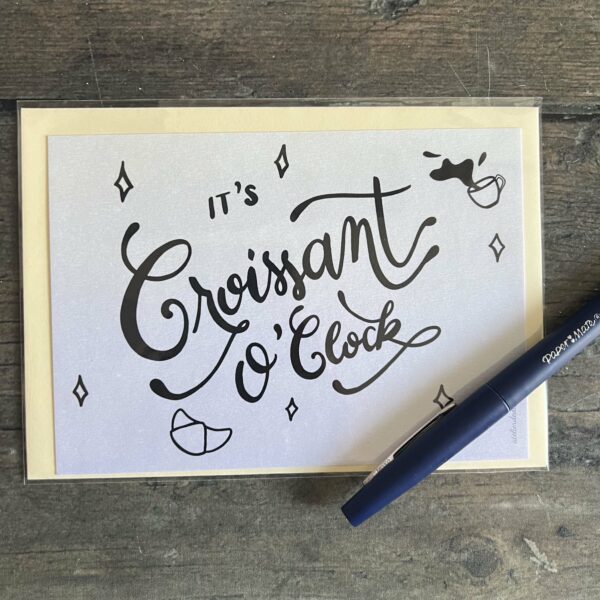 IT'S
Croissant
O'Clock
Paper Mate®